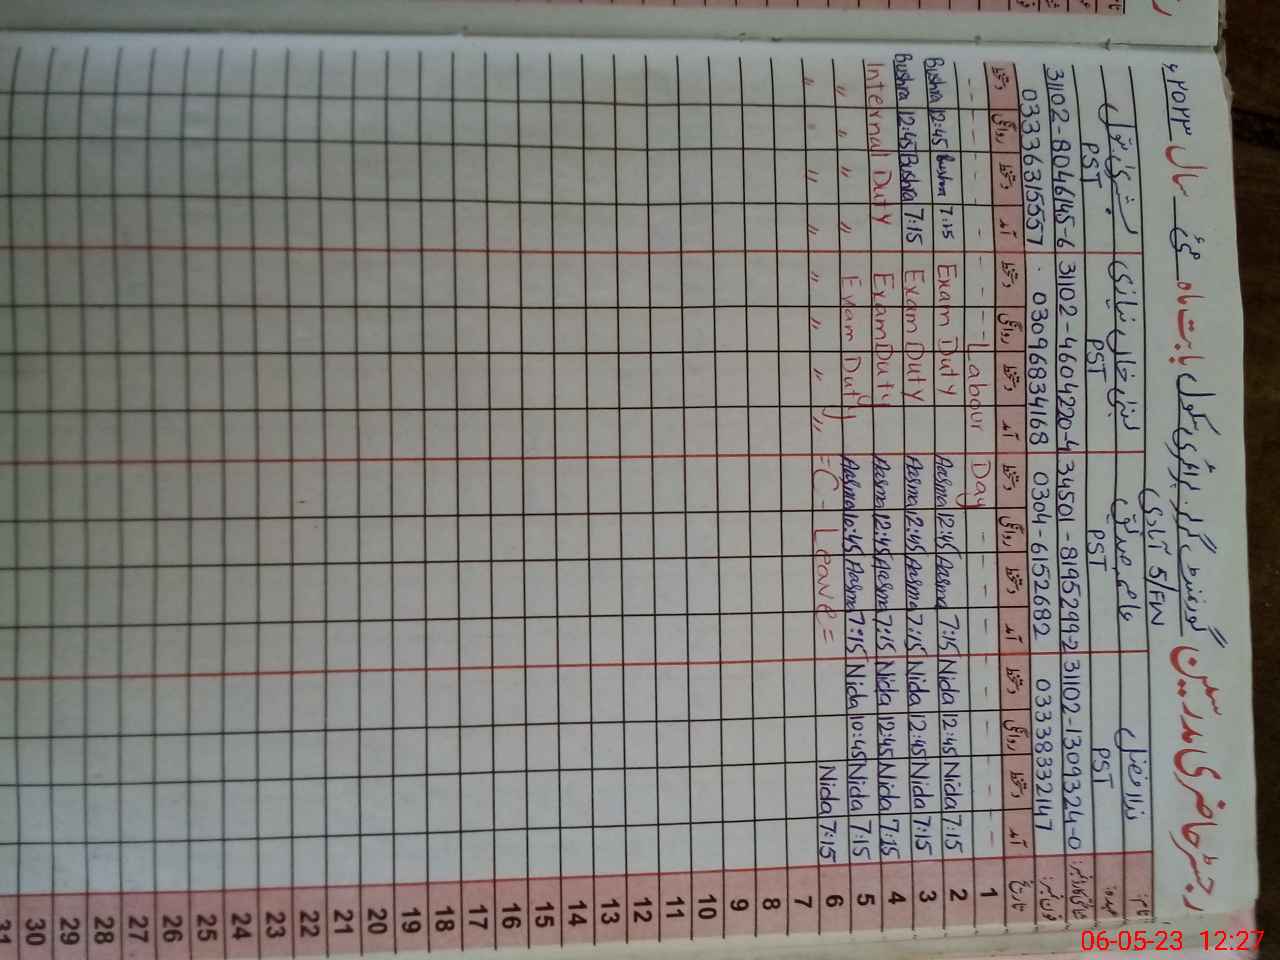 رجسٹر حاضری مدرسین گورنمنٹ گرلز پرائمری سکول بابت ماہ مئی سال ۲۰۲۳ء
5/FW آبادی
نام: ندا فضل عاصمہ صدیق لبنیٰ خان نیازی بشریٰ بتول
عہدہ: PST PST PST PST
31102-8046145-6 31102-4604220-4 34501-8195299-2 31102-1309324-0 شناختی کارڈ نمبر:
03336315557 03096834168 0304-6152682 03338332147 فون نمبر:
تاریخ آمد دستخط روانگی دستخط آمد دستخط روانگی دستخط آمد دستخط روانگی دستخط آمد دستخط روانگی دستخط
- - - - - - - Labour Day - - - - - - - 1
Bushra 12:45 Bushra 7:15 Exam Duty Aasma 12:45 Aasma 7:15 Nida 12:45 Nida 7:15 2
Bushra 12:45 Bushra 7:15 Exam Duty Aasma 12:45 Aasma 7:15 Nida 12:45 Nida 7:15 3
Internal Duty Exam Duty Aasma 12:45 Aasma 7:15 Nida 12:45 Nida 7:15 4
" " " " Exam Duty Aasma 10:45 Aasma 7:15 Nida 10:45 Nida 7:15 5
" " " " " " " =C-Leave= Nida 7:15 6
7
8
9
10
11
12
13
14
15
16
17
18
19
20
21
22
23
24
25
26
27
28
29
30
31
06-05-23 12:27